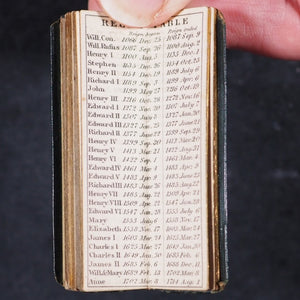 REGAL TABLE
Reign begins Reign ended
Will. Con. 1066 Dec. 25 1087 Sep. 9
Will. Rufus 1087 Sep. 26 1100 Aug. 2
Henry I 1100 Aug. 5 1135 Dec. 1
Stephen 1135 Dec. 26 1154 Oct. 25
Henry II 1154 Dec. 19 1189 July 6
Richard I 1189 Sep. 3 1199 Apr. 6
John 1199 May 27 1216 Oct. 19
Henry III 1216 Oct. 28 1272 Nov. 16
Edward I 1272 Nov. 20 1307 July 7
Edward II 1307 July 1327 Jan. 20
Edward III 1327 Jan. 1377 June 21
Richard II 1377 June 22 1399 Sep. 29
Henry IV 1399 Sep. 30 1413 Mar. 20
Henry V 1413 Mar. 21 1422 Aug. 31
Henry VI 1422 Sep. 1 1461 Mar. 4
Edward IV 1461 Mar. 4 1483 Apr. 9
Edward V 1483 Apr. 9 1483 June
Richard III 1483 June 26 1485 Aug. 22
Henry VII 1485 Aug. 22 1509 Apr. 21
Henry VIII 1509 Apr. 22 1547 Jan. 28
Edward VI 1547 Jan. 28 1553 July 6
Mary 1553 July 6 1558 Nov. 17
Elizabeth 1558 Nov. 17 1603 Mar. 24
James I 1603 Mar. 24 1625 Mar. 27
Charles I 1625 Mar. 27 1649 Jan. 30
Charles II 1649 Jan. 30 1685 Feb. 6
James II 1685 Feb. 6
Will. & Mary 1689 Feb. 13 1702 Mar. 8
Anne 1702 Mar. 8 1714 Aug. 1